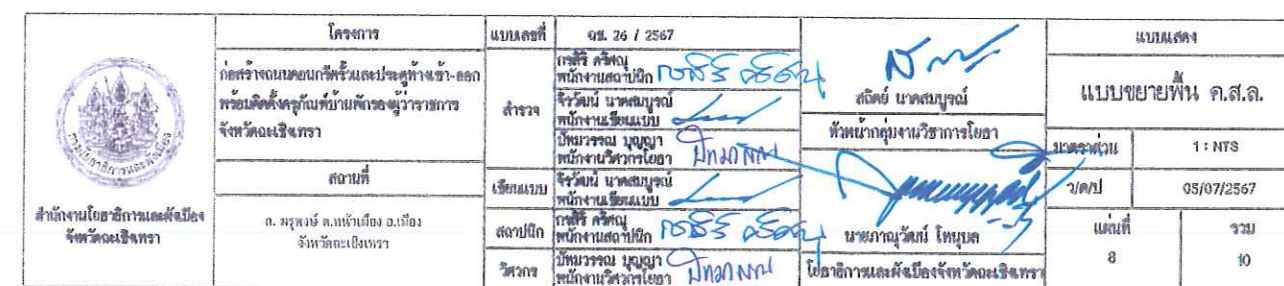 กรมโยธาธิการและผังเมือง
สำนักงานโยธาธิการและผังเมือง
จังหวัดฉะเชิงเทรา
โครงการ
ก่อสร้างถนนคอนกรีตรั้วและประตูทางเข้า-ออก
พร้อมติดตั้งครุภัณฑ์บ้านพักรองผู้ว่าราชการ
จังหวัดฉะเชิงเทรา
สถานที่
ถ. มรุพงษ์ ต.หน้าเมือง อ.เมือง
จังหวัดฉะเชิงเทรา
แบบเลขที่
ฉช. 26 / 2567
สำรวจ
พนักงานสถาปนิก
จิรวัฒน์ นาคสมบูรณ์
พนักงานเขียนแบบ
ปัทมาวรรณ บุญญา
พนักงานวิศวกรโยธา
เขียนแบบ
จิรวัฒน์ นาคสมบูรณ์
พนักงานเขียนแบบ
สถาปนิก
พนักงานสถาปนิก
วิศวกร
ปัทมาวรรณ บุญญา
พนักงานวิศวกรโยธา
สถิตย์ นาคสมบูรณ์
หัวหน้ากลุ่มงานวิชาการโยธา
นายภาณุวัฒน์ โทนุบล
โยธาธิการและผังเมืองจังหวัดฉะเชิงเทรา
แบบแสดง
แบบขยายพื้น ค.ส.ล.
มาตราส่วน
1 : NTS
ว/ด/ป
05/07/2567
แผ่นที่
รวม
8
10